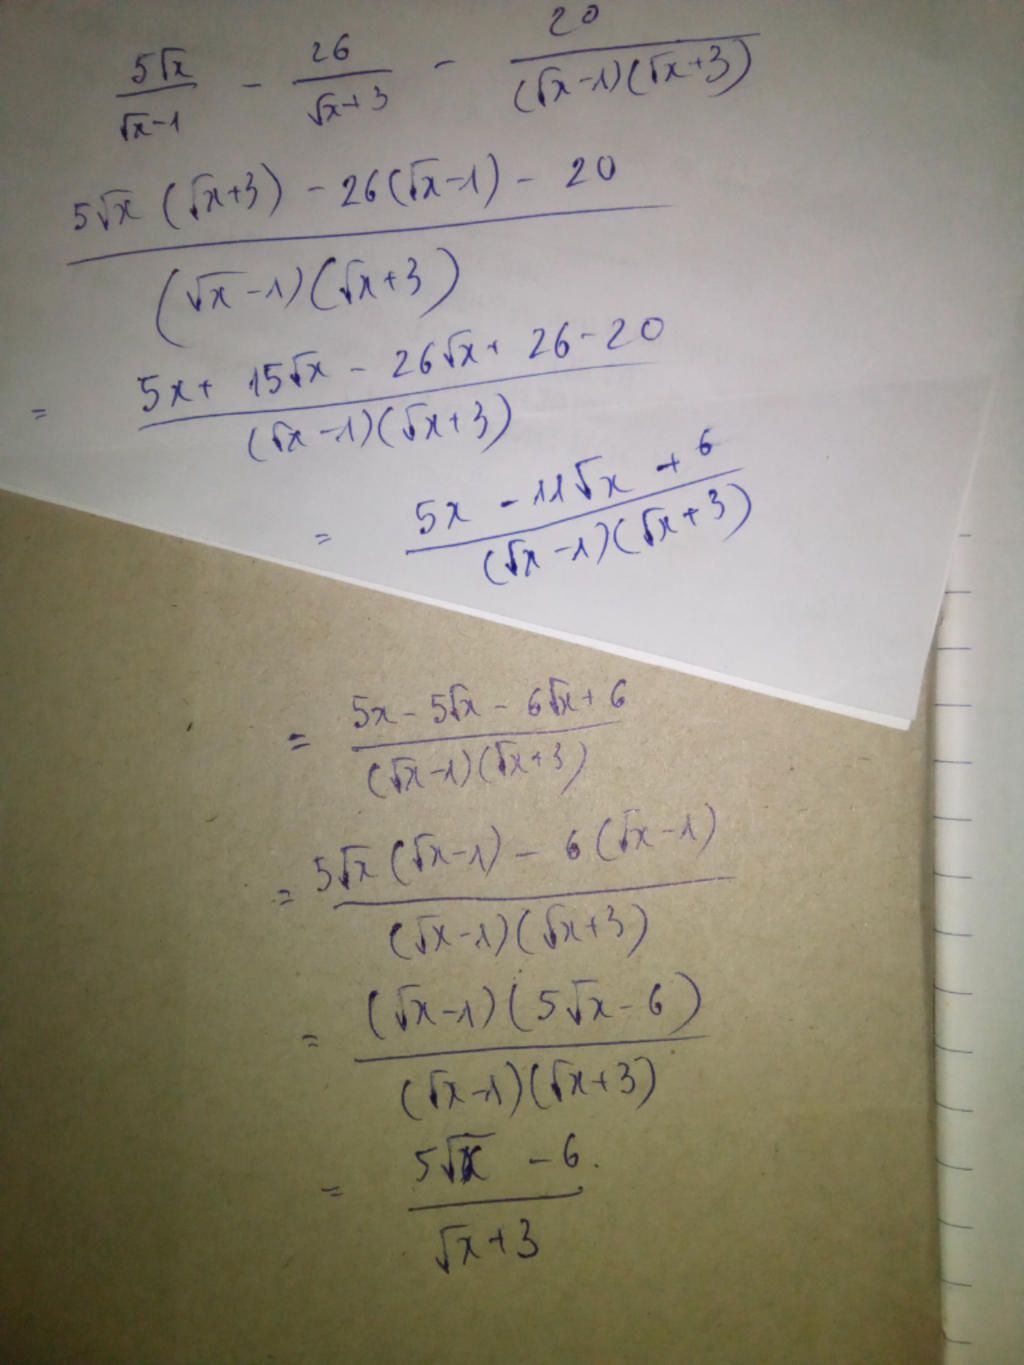 5√x/(√x-1) - 26/(√x+3) - 20/((√x-1)(√x+3))
(5√x(√x+3) - 26(√x-1) - 20)/((√x-1)(√x+3))
= (5x + 15√x - 26√x + 26 - 20)/((√x-1)(√x+3))
= (5x - 11√x + 6)/((√x-1)(√x+3))
= (5x - 5√x - 6√x + 6)/((√x-1)(√x+3))
= (5√x(√x-1) - 6(√x-1))/((√x-1)(√x+3))
= ((√x-1)(5√x-6))/((√x-1)(√x+3))
= (5√x - 6)/(√x+3).